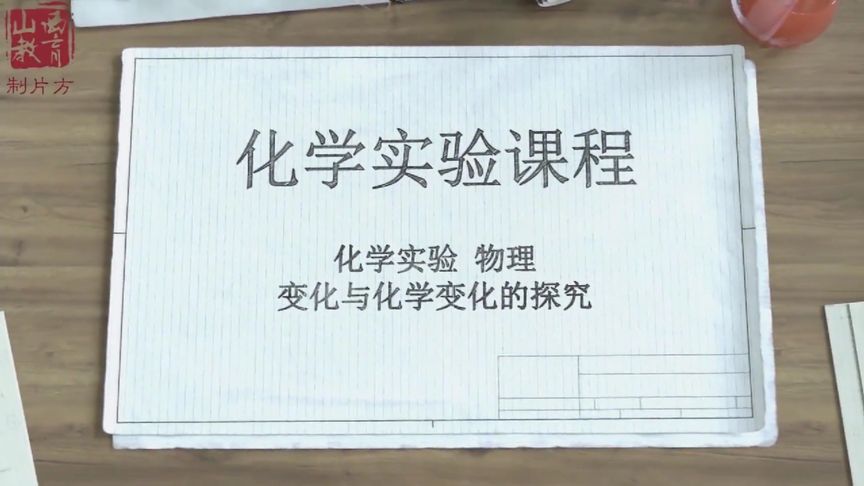 山西
教育
制片方
化学实验课程
化学实验 物理
变化与化学变化的探究